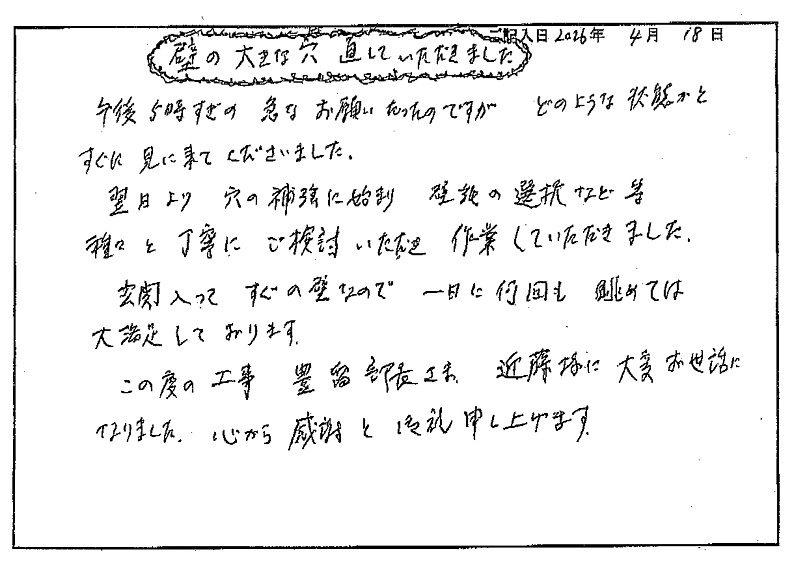 ご記入日 2026年 4月 18日
壁の大きな穴 直していただきました
午後5時すぎの 急な お願いだったのですが どのような 状態かと
すぐに 見に来てくださいました。
翌日より 穴の補強に始まり 壁紙の選択など等
種々と丁寧に ご検討いただき 作業していただきました。
玄関入って すぐの壁なので 一日に何回も 眺めては
大満足しております。
この度の工事 豊留部長さま、近藤様に 大変お世話に
なりました。心から感謝と御礼申し上げます。